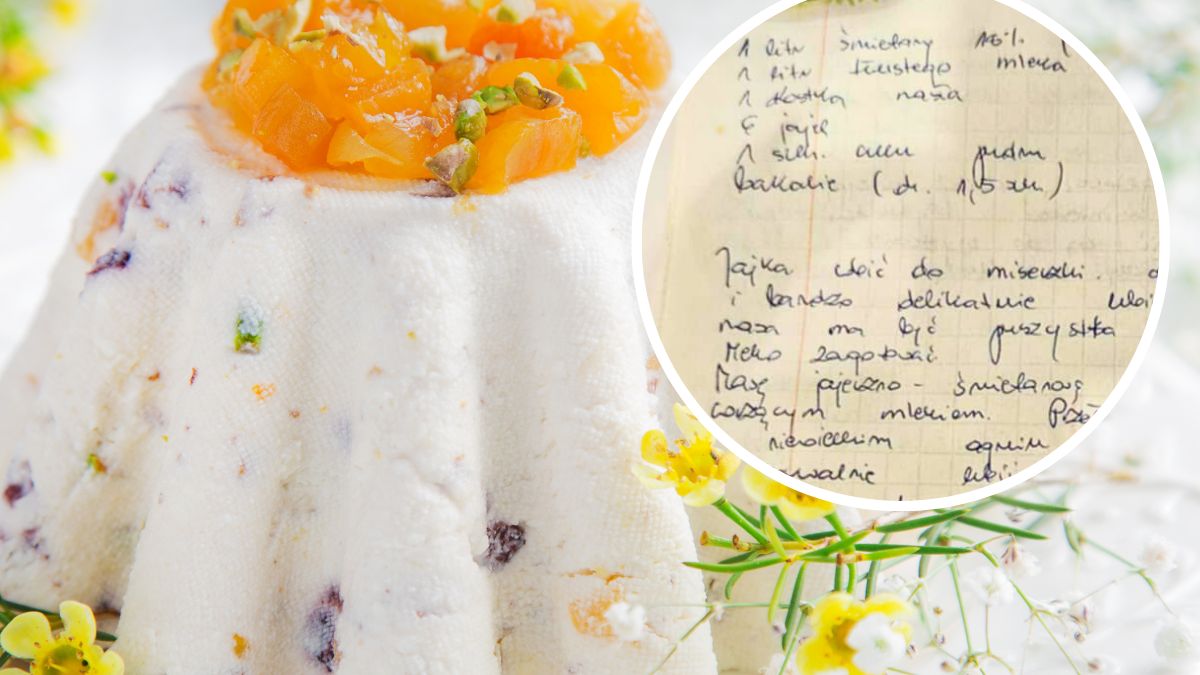 1 litr śmietany 18%
1 litr tłustego mleka
1 kostka masła
6 jajek
1 szkl. cukru pudru
bakalie (ok. 1,5 szkl.)
Jajka wbić do miseczki.
i bardzo delikatnie
masa ma być puszysta
Mleko zagotować
Masę jajeczno-śmietanową
mlekiem.
niewielkim ogniu